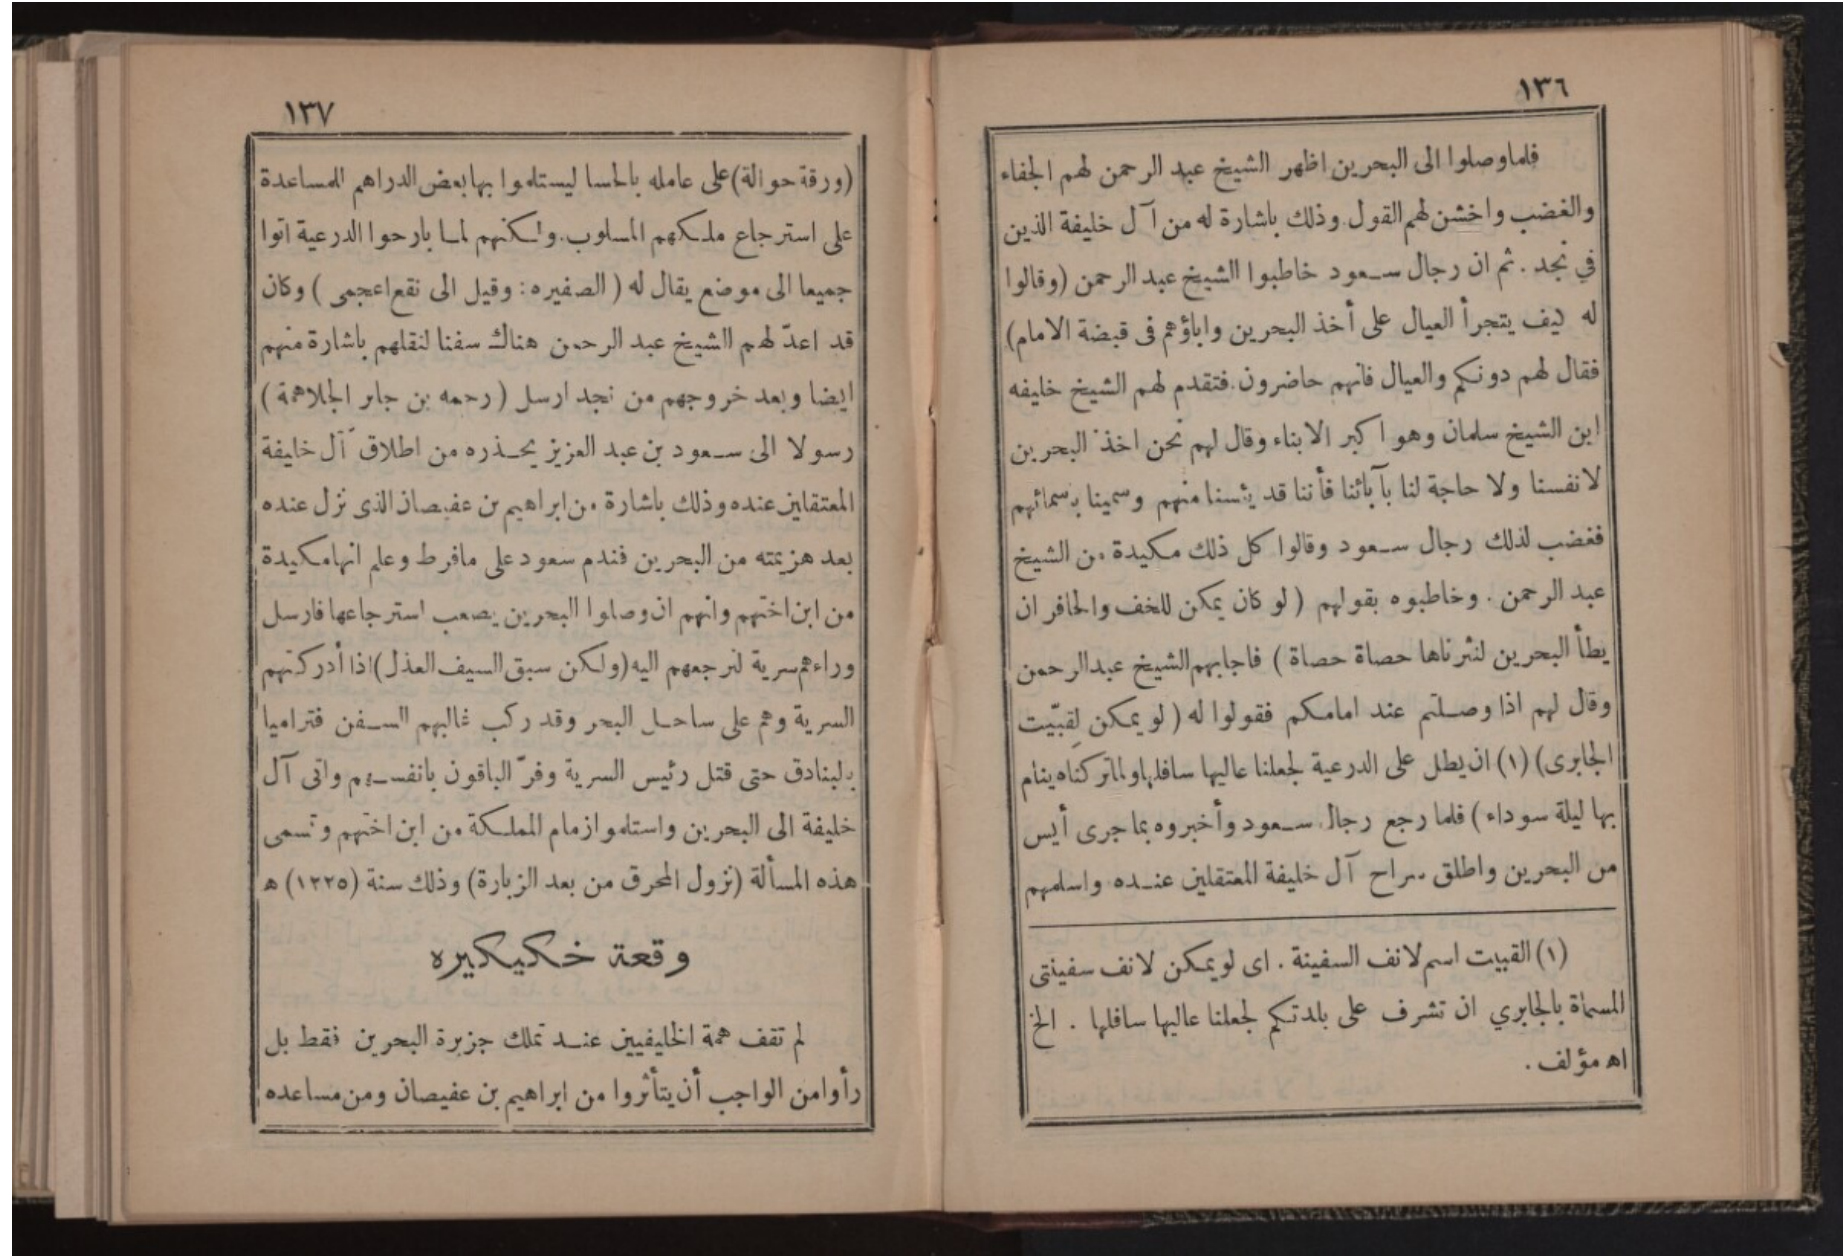 ١٣٦
فلما وصلوا الى البحرين اظهر الشيخ عبد الرحمن لهم الجفاء
والغضب واخشن لهم القول. وذلك باشارة له من آل خليفة الذين
في نجد. ثم ان رجال سعود خاطبوا الشيخ عبد الرحمن (وقالوا
له كيف يتجرأ العيال على أخذ البحرين واباؤهم فى قبضة الامام)
فقال لهم دونكم والعيال فانهم حاضرون. فتقدم لهم الشيخ خليفه
ابن الشيخ سلمان وهو اكبر الابناء وقال لهم نحن اخذنا البحرين
لانفسنا ولا حاجة لنا بآبائنا فأننا قد يئسنا منهم وسمينا باسمائهم
فغضب لذلك رجال سعود وقالوا كل ذلك مكيدة من الشيخ
عبد الرحمن. وخاطبوه بقولهم (لو كان يمكن للخف والحافر ان
يطأ البحرين لنثرناها حصاة حصاة) فاجابهم الشيخ عبد الرحمن
وقال لهم اذا وصلتم عند امامكم فقولوا له (لو يمكن لِقبّيت
الجابرى) (١) ان يطل على الدرعية لجعلنا عاليها سافلها ولما تركناه ينام
بها ليلة سوداء) فلما رجع رجال سعود وأخبروه بما جرى أيس
من البحرين واطلق سراح آل خليفة المعتقلين عنده واسلمهم
(١) القبيت اسم لانف السفينة. اى لو يمكن لانف سفينتى
المسماة بالجابري ان تشرف على بلدتكم لجعلنا عاليها سافلها. الخ
اه مؤلف.
١٣٧
(ورقة حوالة) على عامله بالحسا ليستلموا بها بعض الدراهم للمساعدة
على استرجاع ملكهم المسلوب. ولكنهم لما بارحوا الدرعية اتوا
جميعا الى موضع يقال له (الصفيره: وقيل الى نقع اعجمى) وكان
قد اعدّ لهم الشيخ عبد الرحمن هناك سفنا لنقلهم باشارة منهم
ايضا وبعد خروجهم من نجد ارسل (رحمه بن جابر الجلاهمة)
رسولا الى سعود بن عبد العزيز يحذره من اطلاق آل خليفة
المعتقلين عنده وذلك باشارة من ابراهيم بن عفيصان الذى نزل عنده
بعد هزيمته من البحرين فندم سعود على مافرط وعلم انها مكيدة
من ابن اختهم وانهم ان وصلوا البحرين يصعب استرجاعها فارسل
وراءهم سرية لترجعهم اليه (ولكن سبق السيف العذل) اذا أدركتهم
السرية وهم على ساحل البحر وقد ركب غالبهم السفن فتراميا
بالبنادق حتى قتل رئيس السرية وفرّ الباقون بانفسهم واتى آل
خليفة الى البحرين واستلموا زمام المملكة من ابن اختهم وتسمى
هذه المسألة (نزول المحرق من بعد الزبارة) وذلك سنة (١٢٢٥) ه
وقعة خكيكيره
لم تقف همة الخليفيين عند تملك جزيرة البحرين فقط بل
رأوا من الواجب أن يتأثروا من ابراهيم بن عفيصان ومن مساعده